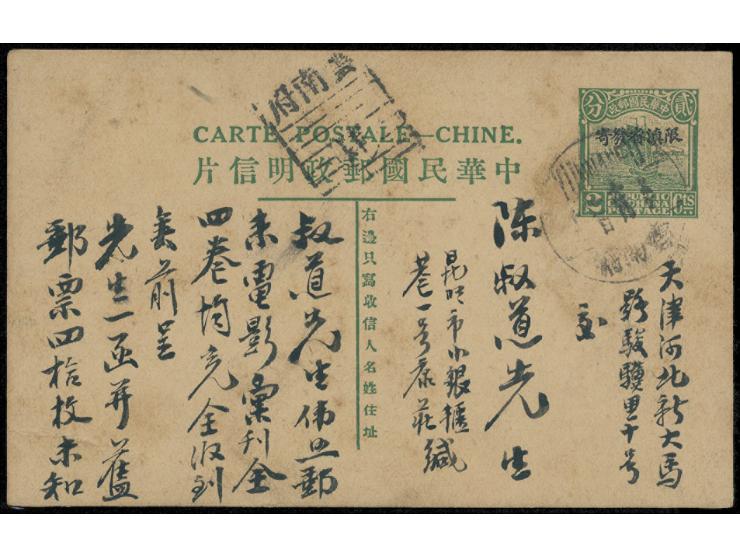 CARTE POSTALE—CHINE.
片信明政郵國民華中
分 政郵國民華中 貳
寄貼省滇限
2 REPUBLIC OF CHINA POSTAGE Cts
府南雲
右邊只寫收信人名姓住址
天津河北新大馬
路駿驥里十号
陳叔道先生
昆明市小銀櫃
巷一号康莊緘
叔道先生偉
郵
来電影彙刊全
四卷均完全收到
前呈
先生一函并舊
郵票四拾枚未知